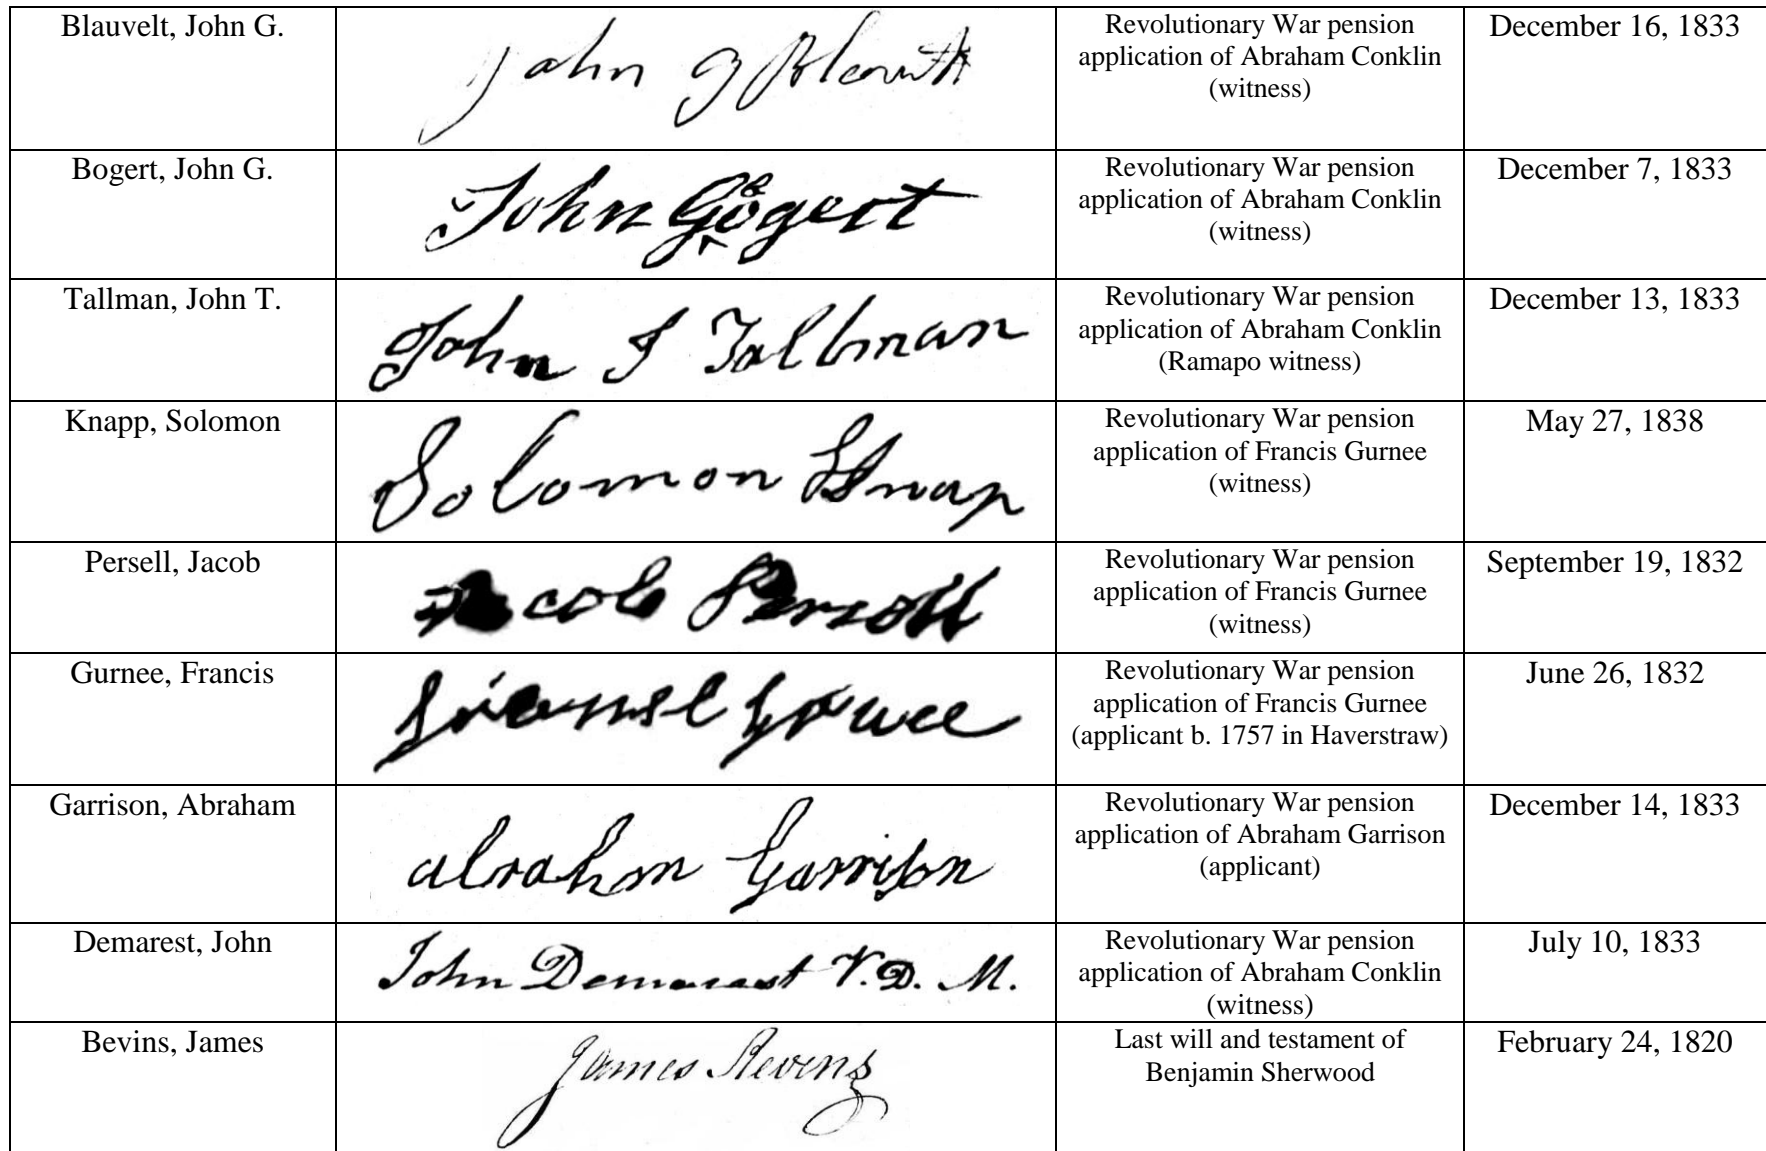 Blauvelt, John G.
John G Blauvelt
Revolutionary War pension
application of Abraham Conklin
(witness)
December 16, 1833
Bogert, John G.
John G Bogert
Revolutionary War pension
application of Abraham Conklin
(witness)
December 7, 1833
Tallman, John T.
John T Tallman
Revolutionary War pension
application of Abraham Conklin
(Ramapo witness)
December 13, 1833
Knapp, Solomon
Solomon Knap
Revolutionary War pension
application of Francis Gurnee
(witness)
May 27, 1838
Persell, Jacob
Jacob Persell
Revolutionary War pension
application of Francis Gurnee
(witness)
September 19, 1832
Gurnee, Francis
Revolutionary War pension
application of Francis Gurnee
(applicant b. 1757 in Haverstraw)
June 26, 1832
Garrison, Abraham
abraham Garrison
Revolutionary War pension
application of Abraham Garrison
(applicant)
December 14, 1833
Demarest, John
John Demarest V. D. M.
Revolutionary War pension
application of Abraham Conklin
(witness)
July 10, 1833
Bevins, James
James
Last will and testament of
Benjamin Sherwood
February 24, 1820